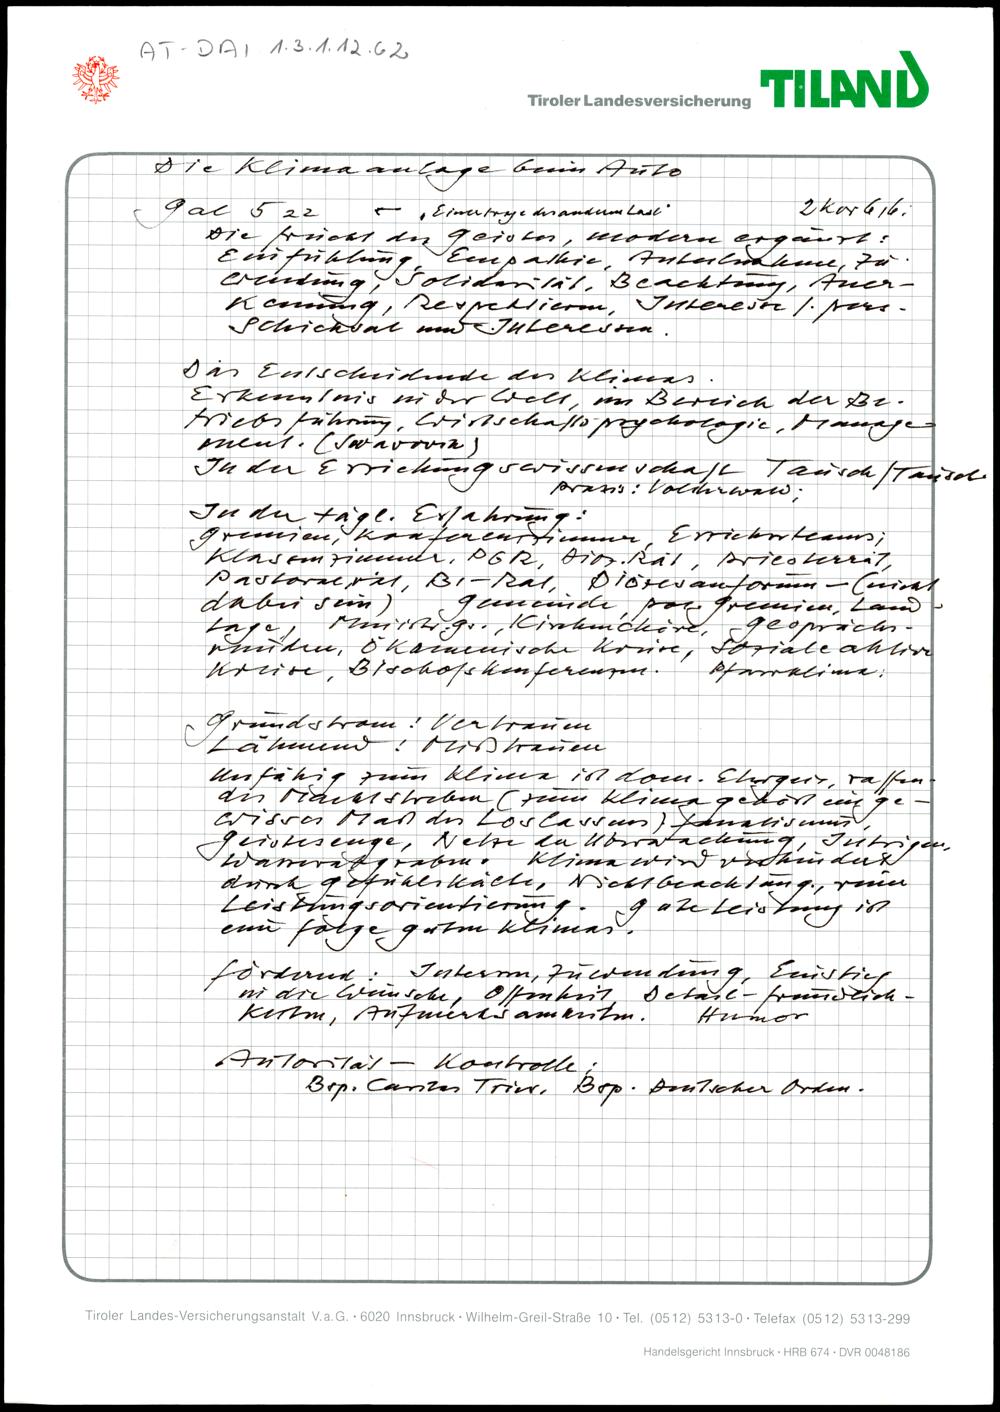 AT-DAI 1.3.1.12.62
Tiroler Landesversicherung TILAND
Die Klimaanlage beim Auto
Gal 5 22 "Einer trage des anderen Last" 2 Kor 6,6;
Die Frucht des Geistes, modern ergänzt:
Einfühlung, Empathie, Anteilnahme, Zu-
wendung, Solidarität, Beachtung, Aner-
kennung, Respektieren, Interesse f. pers.
Schicksal und Interessen.
Das Entscheidende des Klimas.
Erkenntnis in der Welt, im Bereich der Be-
triebsführung, Wirtschaftspsychologie, Manage-
ment. (Swarovski)
In der Erziehungswissenschaft Tausch/Tausch
Praxis: Volderwald;
In der tägl. Erfahrung:
Gremien, Konferenzzimmer, Erzieherteams;
Klassenzimmer, PGR, Diöz.Rat, Priesterrat,
Pastoralrat, Bi-Rat, Diözesanforum – (nicht
dabei sein) Gemeinde, pol. Gremien, Land-
tage, Ministr.gr., Kirchenchöre, Gesprächs-
runden, Ökumenische Kreise, Soziale aktive
Kreise, Bischofskonferenzen. Pfarrklima:
Grundstrom: Vertrauen
Lähmend: Mißtrauen
Unfähig zum Klima ist dom. Ehrgeiz, raffen-
des Machtstreben (zum Klima gehört ein ge-
wisses Maß des Loslassens) Fanatismus,
Geistesenge, Netze der Überwachung, Intrigen,
Klima wird verhindert
durch Gefühlskälte, Nichtbeachtung, reine
Leistungsorientierung. Gute Leistung ist
eine Folge guten Klimas.
fördernd: Interesse, Zuwendung, Einstieg
in die Wünsche, Offenheit, Detail-freundlich-
keiten, Aufmerksamkeiten. Humor
Autorität – Kontrolle:
Bsp. Caritas Trier. Bsp. Deutscher Orden.
Tiroler Landes-Versicherungsanstalt V.a.G. • 6020 Innsbruck • Wilhelm-Greil-Straße 10 • Tel. (0512) 5313-0 • Telefax (0512) 5313-299
Handelsgericht Innsbruck • HRB 674 • DVR 0048186